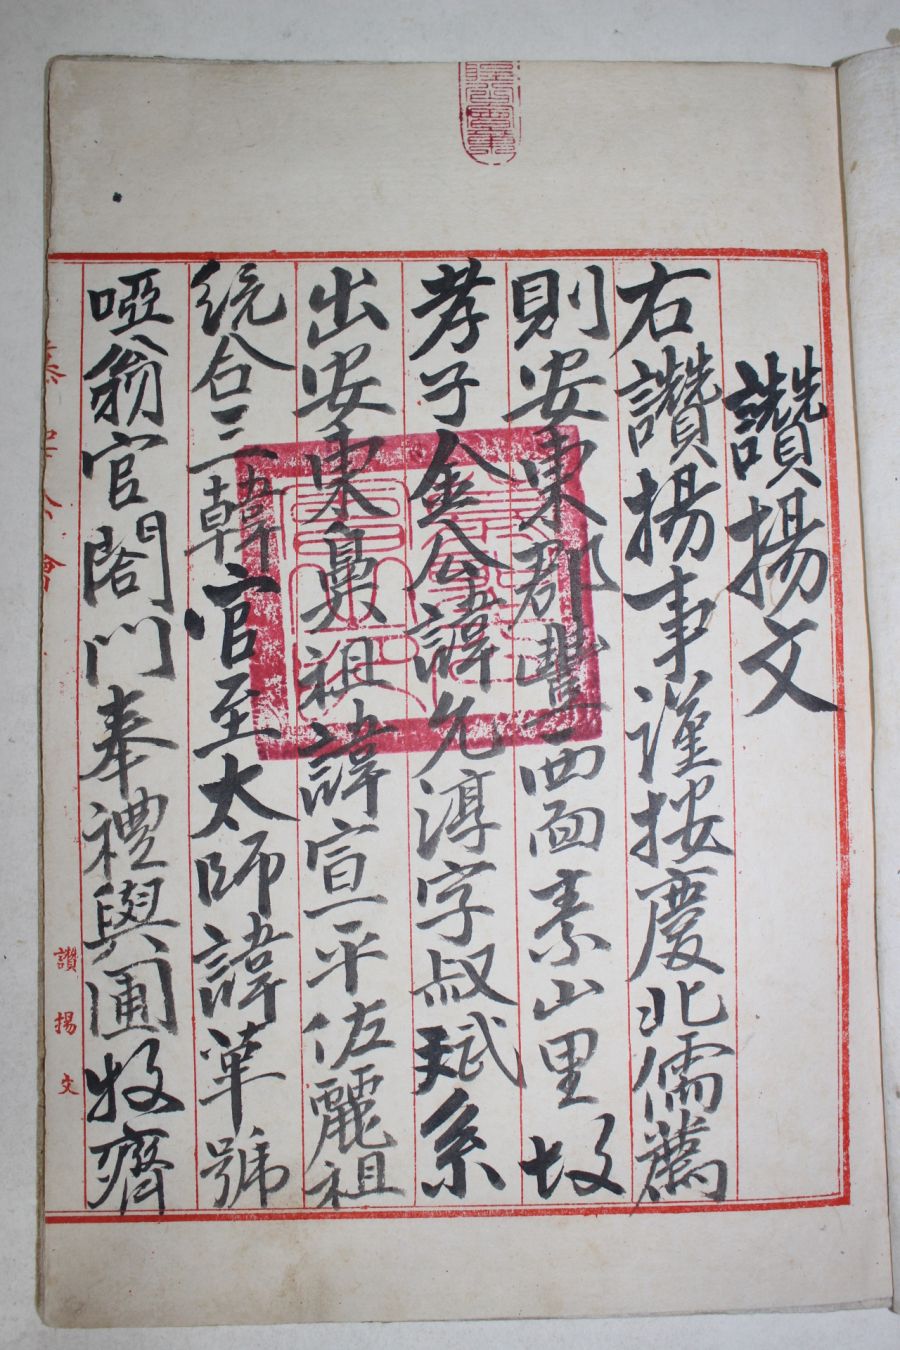 讚揚文
右讚揚事謹按慶北儒薦
則安東郡豐西面素山里故
孝子金公諱允淳字叔斌系
出安東鼻祖諱宣平佐麗祖
統合三韓官至太師諱革號
啞翁官閤門奉禮與圃牧齋
讚揚文